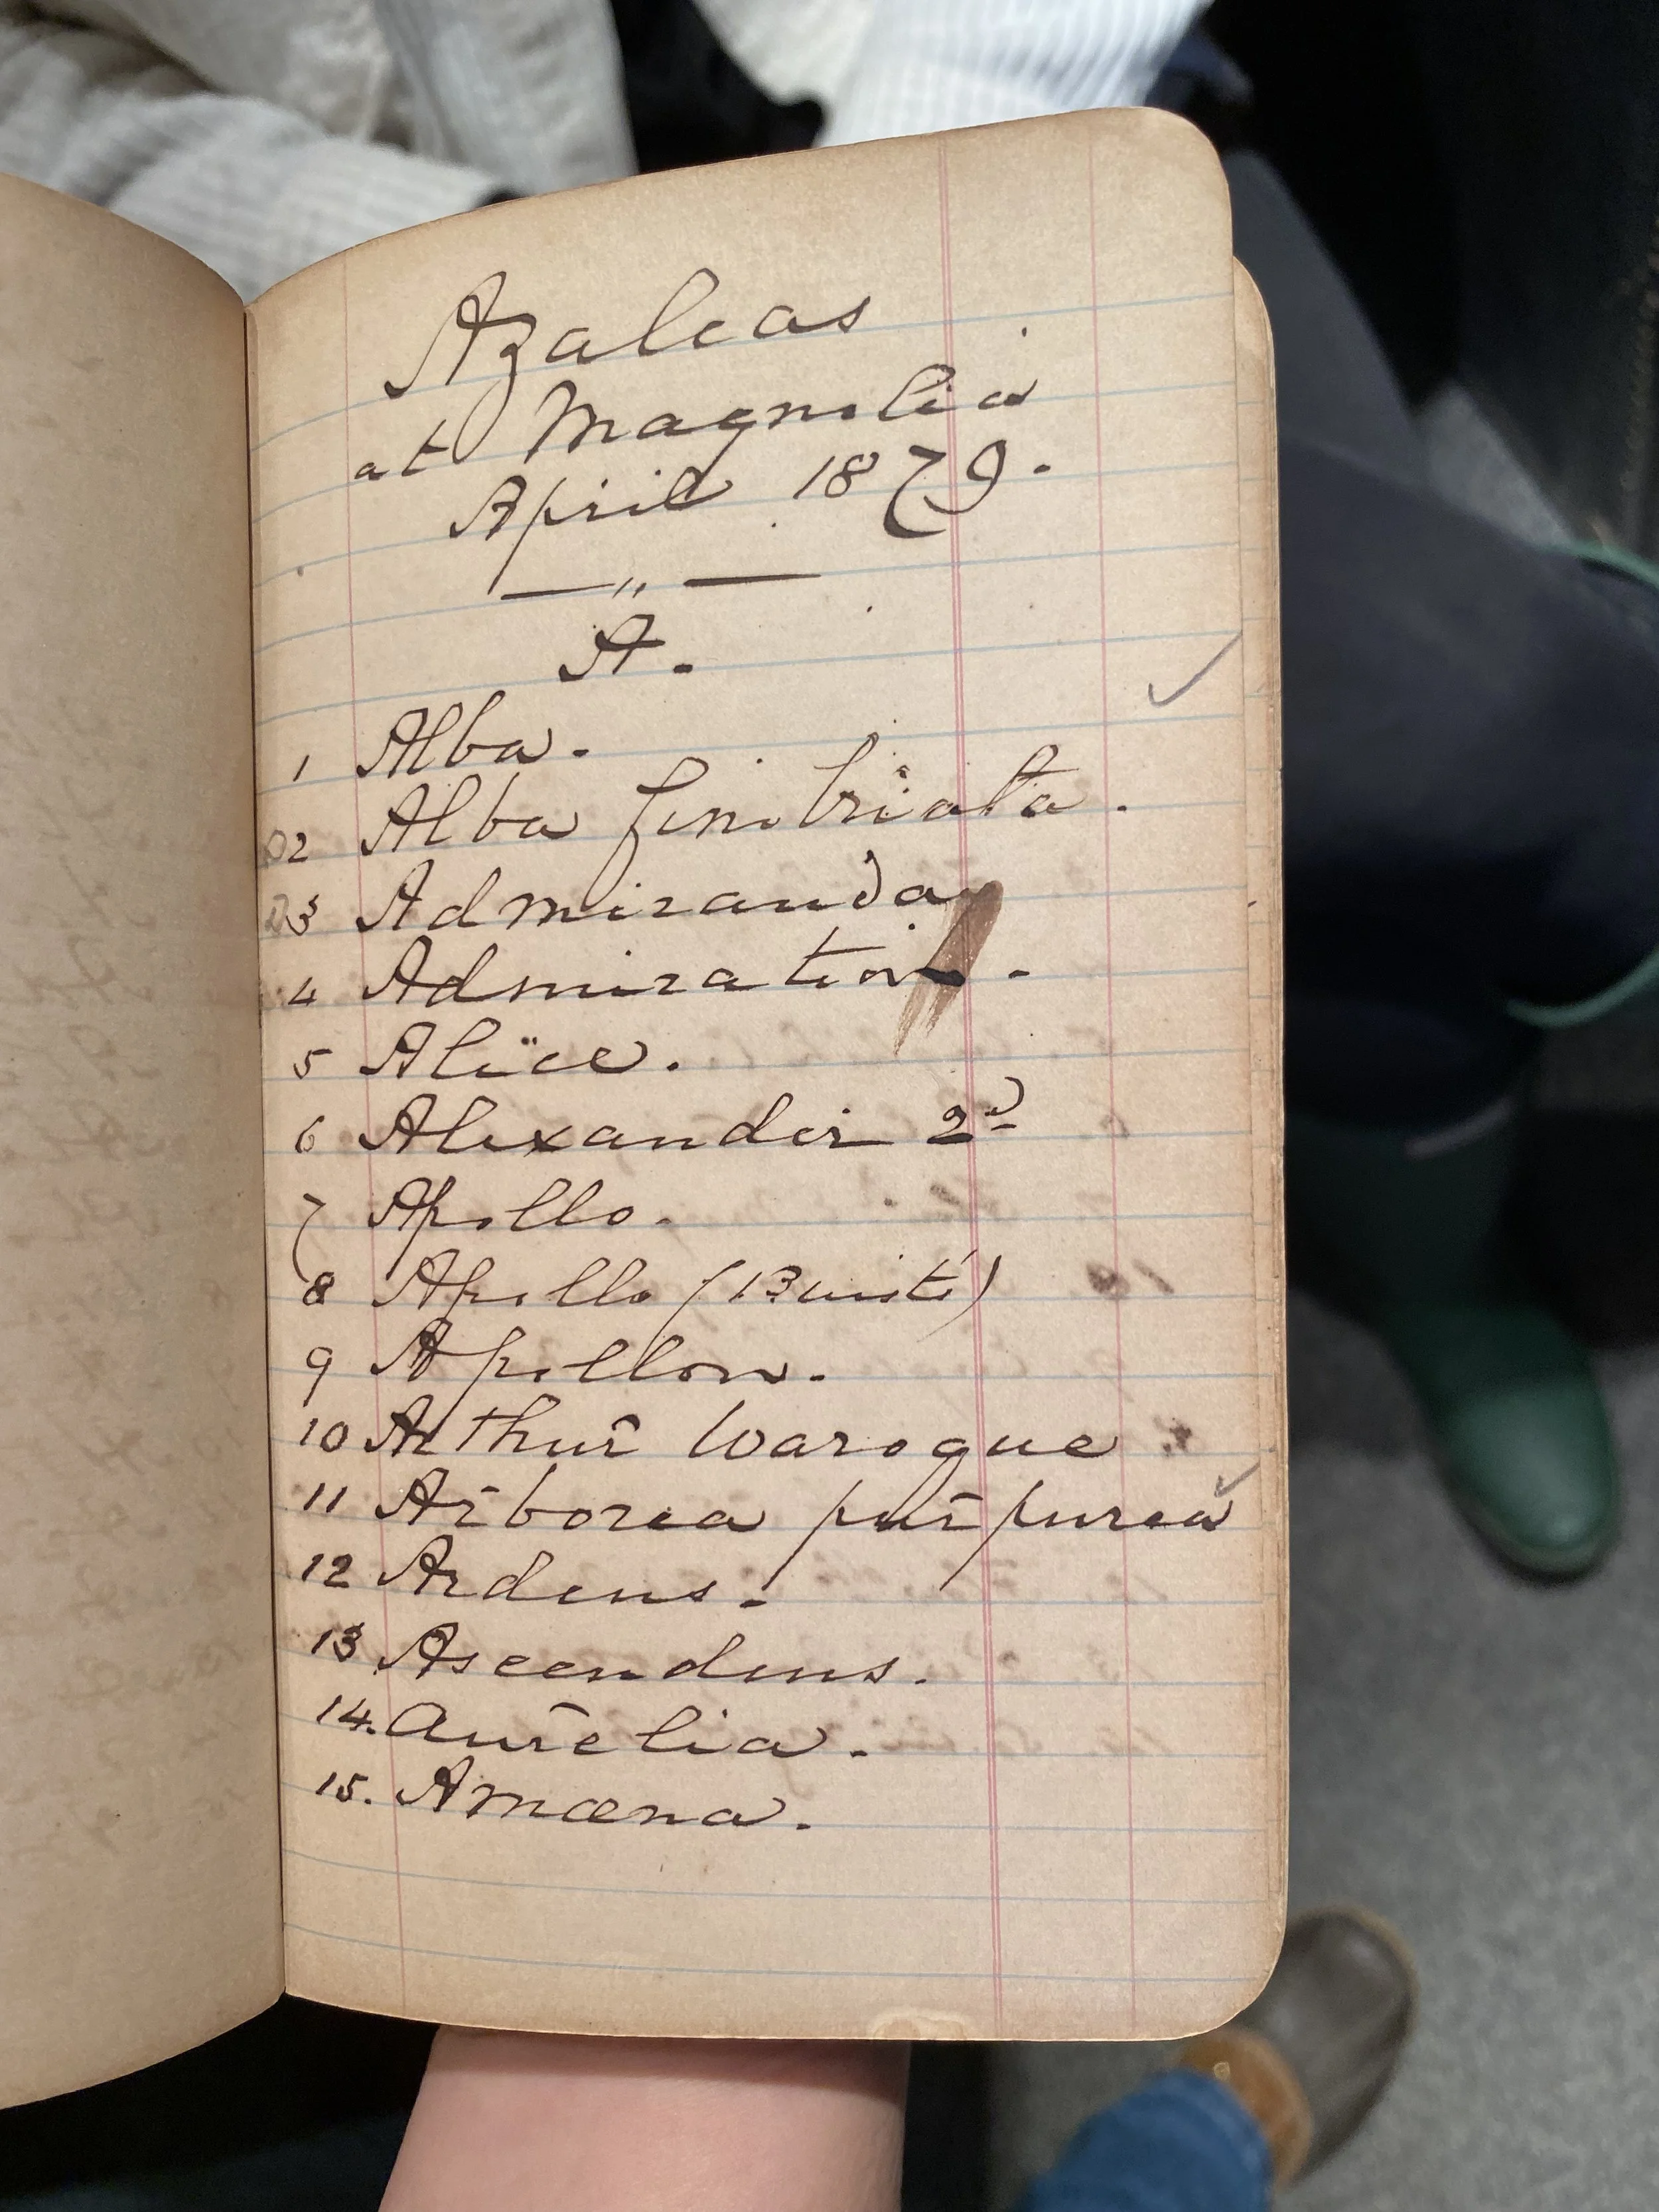 Azaleas
at Magnolia
April 1879.
— " —
A.
1 Alba. ✓
D2 Alba fimbriata.
D3 Admiranda
4 Admiration.
5 Alice.
6 Alexander 2d
7 Apollo.
8 Apollo (Buist)
9 Apollon.
10 Arthur Waroque
11 Arborea purpurea ✓
12 Ardens.
13 Ascendens.
14. Aurelia.
15. Amœna.